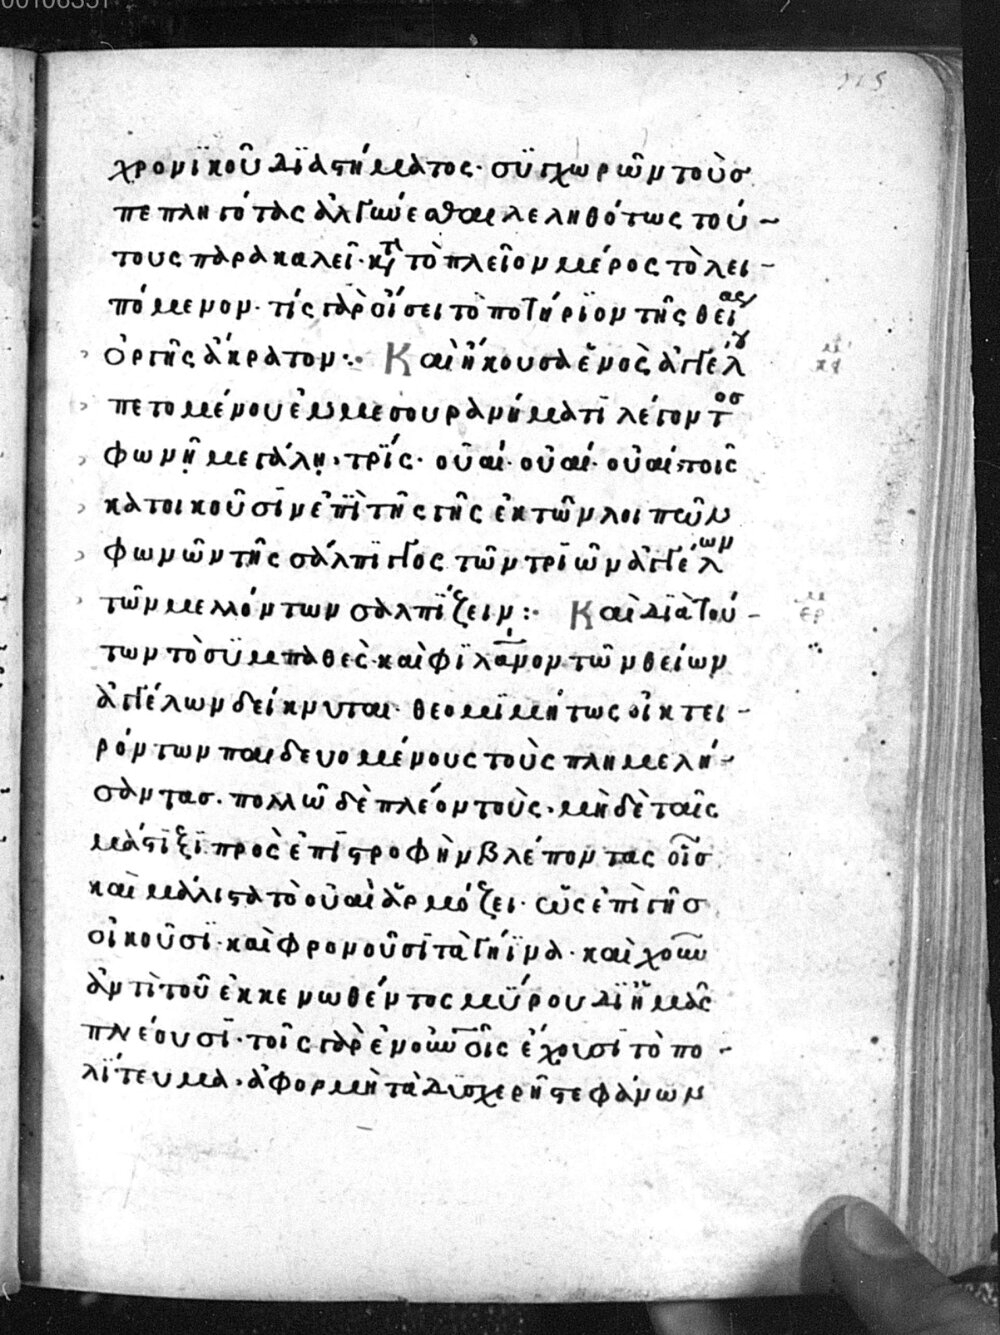 χρονϊκοῦ δϊαστήματος· σϋγχωρῶν τοὺσ
πεπληγότας ἀλγύνεσθαι λεληθότως τού-
τους παρακαλεῖ· κτὶ τὸ πλεῖον μέρος τὸ λει-
πόμενον· τίς γὰρ οἴσει τὸ ποτήρϊον τῆς θείας
ὀργῆς ἄκρατον:· Καὶ ἤκουσα ἑνὸς ἀγγέλου
πετομένου ἐν μεσουρανήματϊ λέγοντοσ
φωνῇ μεγάλῃ, τρΐς· οὐαί· οὐαί· οὐαί· τοῖς
κατοικοῦσϊν ἐπῒ τῆς γῆς ἐκ τῶν λοιπῶν
φωνῶν τῆς σάλπϊγγος τῶν τρϊῶν ἀγγέλων
τῶν μελλόντων σαλπΐζειν:· Καὶ δϊὰ τού-
των τὸ σϋμπαθὲς καὶ φϊλάνον τῶν θείων
ἀγγέλων δείκνυται· θεομϊμήτως οἰκτει-
ρόντων παιδευομένους τοὺς πλημελή-
σαντασ· πολλῶ δὲ πλέον τοὺς, μὴ δὲ ταῖς
μάστϊξϊ πρὸς ἐπϊστροφὴν βλέποντας οἷσ
καὶ μάλιστα τὸ οὐαὶ ἁρμόζει· ὡς ἐπὶ γῆσ
οἰκοῦσϊ· καὶ φρονοῦσϊ τὰ γήϊνα· καὶ χοῦν
ἀντὶ τοῦ ἐκκενωθέντος μύρου δϊ ἡμᾶς
πνέουσϊ· τοῖς γὰρ ἐν οὐνοῖς ἔχουσϊ τὸ πο-
λΐτευμα, ἀφορμὴ τὰ δϋσχερῆ στεφάνων